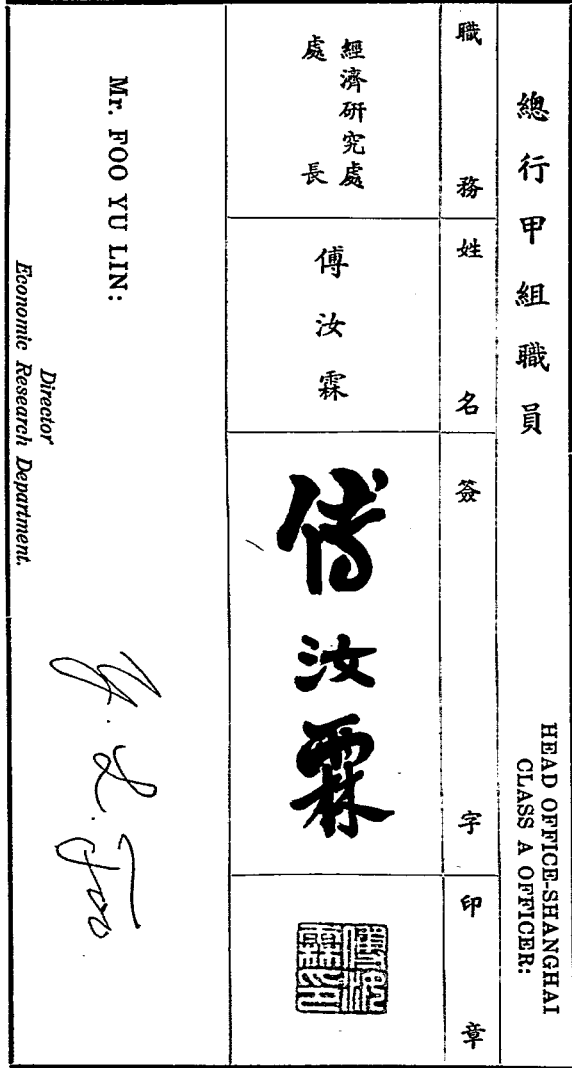 總行甲組職員
HEAD OFFICE-SHANGHAI
CLASS A OFFICER:
職務
姓名
簽字
印章
經濟研究處
處長
傅汝霖
傅汝霖
傅汝霖印
Mr. FOO YU LIN:
Director
Economic Research Department.
Y. L. Foo